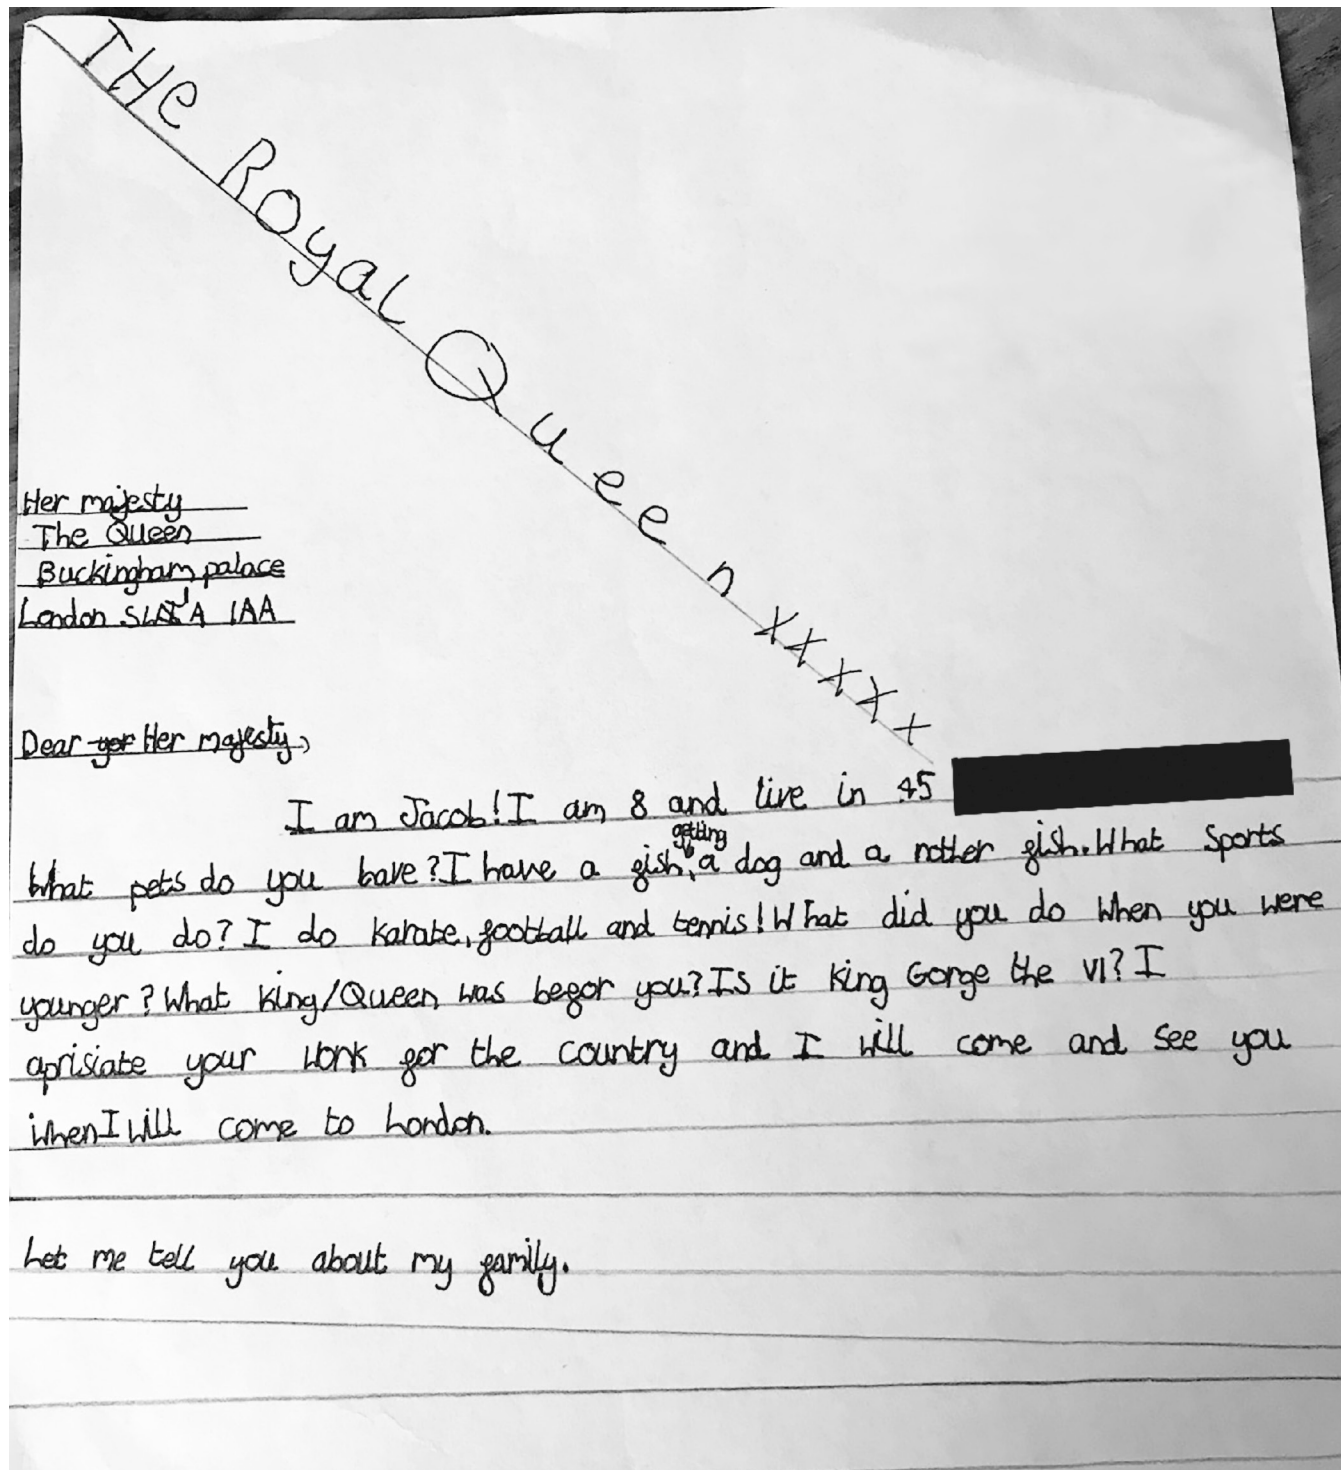 THe Royal Queen xxxxx
Her majesty
The Queen
Buckingham palace
London 1AA
Dear Her majesty,
I am Jacob! I am 8 and live in 45
getting
What pets do you have? I have a fish, a dog and a nother fish. What Sports
do you do? I do karate, football and tennis! What did you do when you were
younger? What King/Queen was befor you? Is it King Gorge the VI? I
aprisiate your work for the country and I will come and see you
when I will come to London.
Let me tell you about my family.